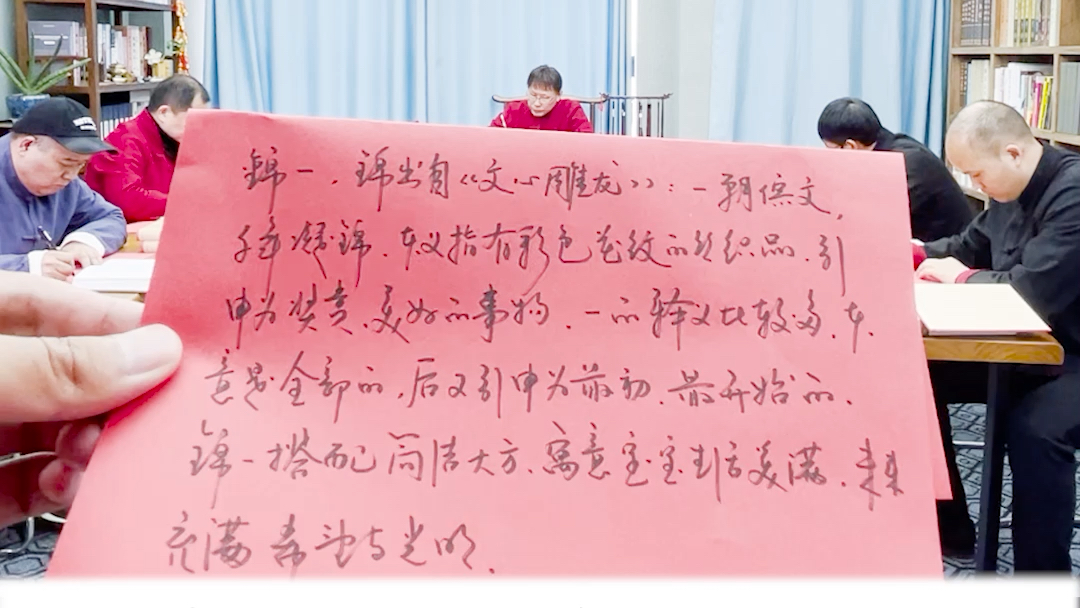 锦一，锦出自《文心雕龙》：一朝综文，
千年凝锦，本义指有彩色花纹的丝织品，引
申为奖贵、美好的事物，一的释义比较多，本
意是全部的，后又引申为最初、最开始的，
锦一搭配简洁大方，寓意宝宝生活美满，未来
充满希望与光明。